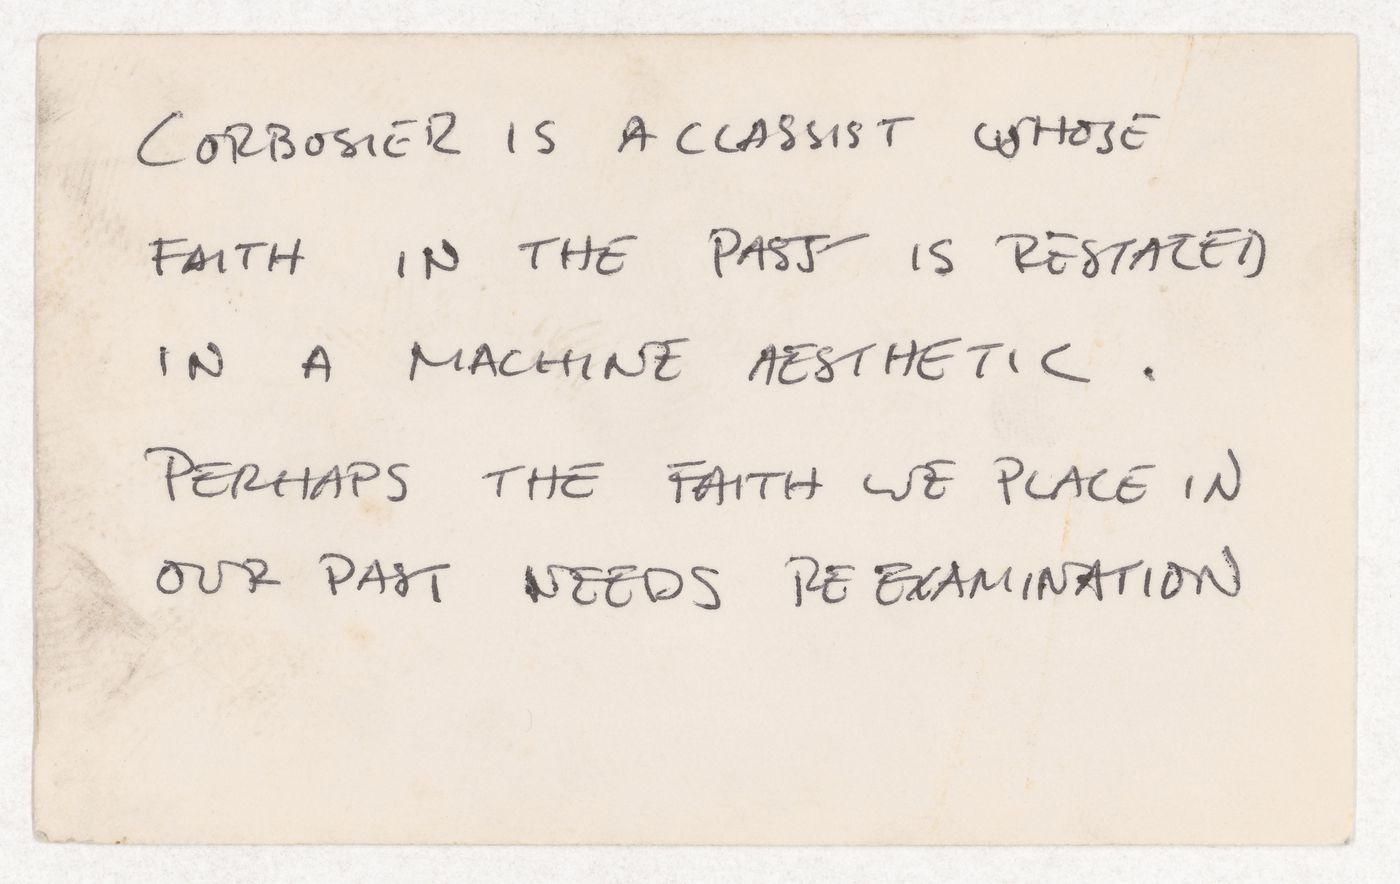 CORBOSIER IS A CLASSIST WHOSE
FAITH IN THE PAST IS RESTATED
IN A MACHINE AESTHETIC.
PERHAPS THE FAITH WE PLACE IN
OUR PAST NEEDS RE EXAMINATION